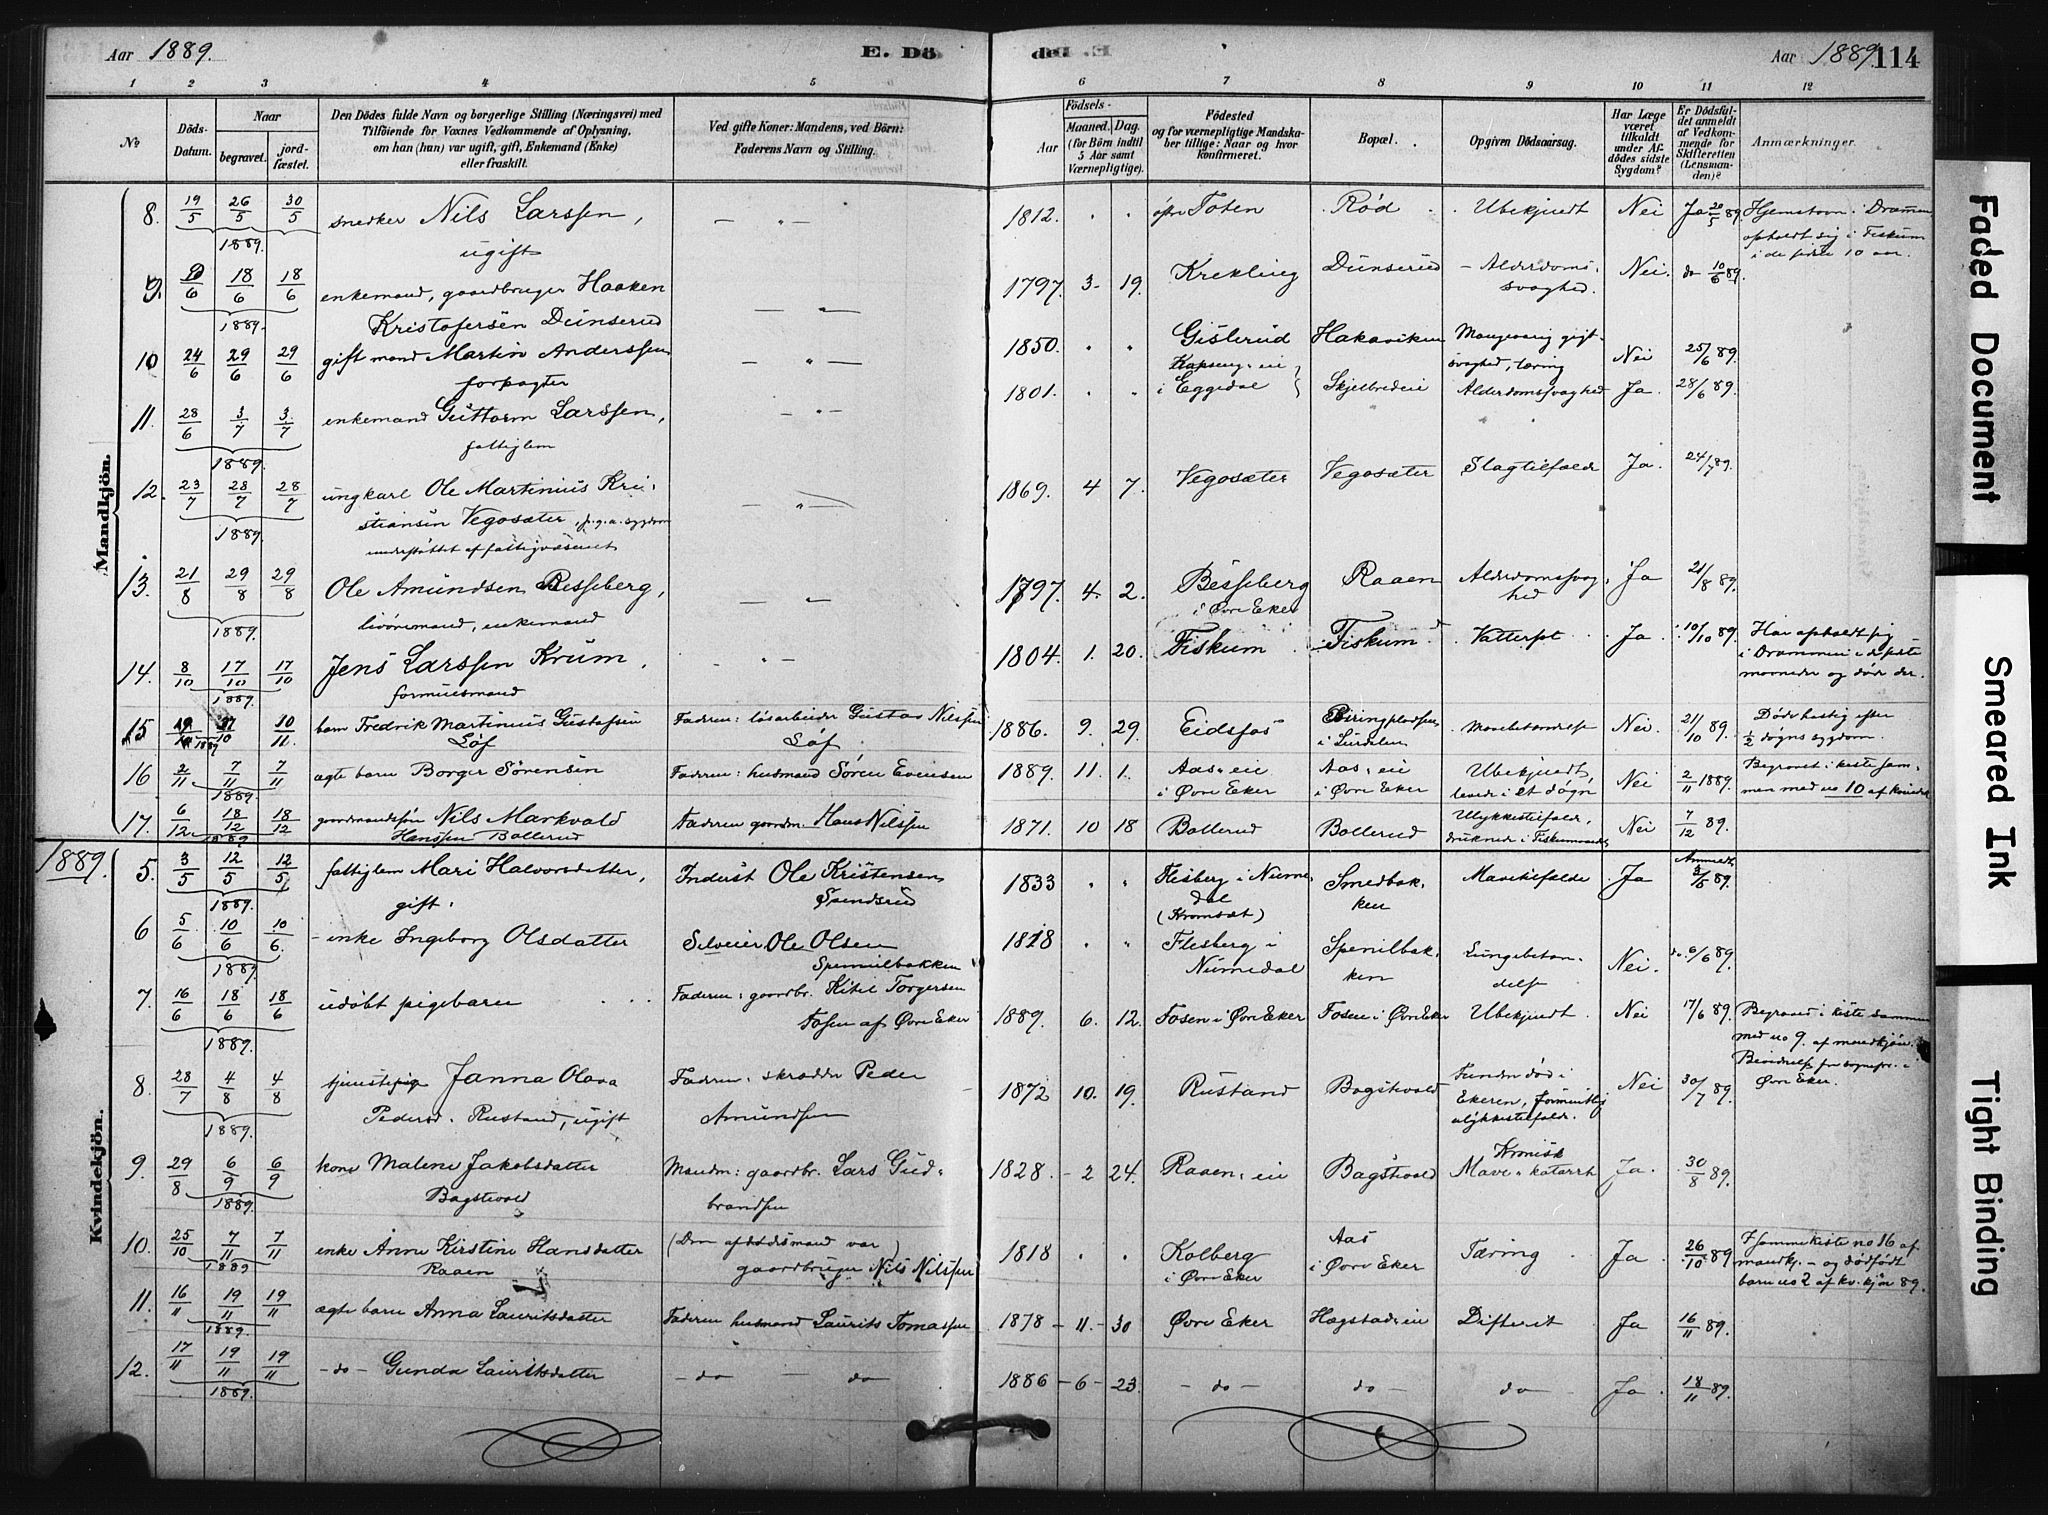 Aar 1889.
E. Dö
de. E.
Aar 1889
114
1 2 3 4 5 6 7 8 9 10 11 12
No
Döds-
Datum.
Naar
begravet.
jord-
fæstet.
Den Dödes fulde Navn og borgerlige Stilling (Næringsvei) med
Tilföiende for Voxnes Vedkommende af Oplysning,
om han (hun) var ugift, gift, Enkemand (Enke)
eller fraskilt.
Ved gifte Koner: Mandens, ved Börn:
Faderens Navn og Stilling.
Födsels-
Aar
Maaned. Dag.
(for Börn indtil
5 Aar samt
Værnepligtige).
Födested
og for værnepligtige Mandska-
ber tillige: Naar og hvor
konfirmeret.
Bopæl.
Opgiven Dödsaarsag.
Har Læge
været
tilkaldt
under Af-
dödes sidste
Sygdom?
Er Dödsfal-
det anmeldt
af Vedkom-
mende for
Skifteretten
(Lensman-
den)?
Anmærkninger.
Mandkjön.
8. 19/5 26/5 30/5 snedker Nils Larssen, — „ — 1812. „ „ östre Toten Rød Ubekjendt Nei Ja 20/5 89. Hjemstavn i Drammen
1889. ugift opholdt sig i Fiskum
i de sidste 10 aar.
9. 6 18/6 18/6 enkemand, gaardbruger Haaken — „ — 1797. 3 19. Krekling Dunserud Alderdoms-svaghed. Nei. do 10/6 89.
1889. Kristofersen Dunserud
10 24/6 29/6 29/6 gift mand Martin Anderssen — „ — 1850. „ „ Gislerud Hakaviken Mangeaarig gigt-svaghed, tæring Nei 25/6 89.
forpagter
11. 28/6 3/7 3/7 enkemand Guttorm Larssen, — „ — 1801. „ „ eie i Eggedal Skjelbredeie Alderdomssvaghed Ja. 28/6 89.
1889. fattiglem
12. 23/7 28/7 28/7 ungkarl Ole Martinius Kri- — „ — 1869. 4 7. Vegosæter Vegosæter Slagtilfælde Ja. 24/7 89.
1889. stiansen Vegosæter, p. g. a. sygdom
understøttet af fattigvæsenet
13. 21/8 29/8 29/8 Ole Amundsen Besseberg, — „ — 1797. 4. 2. Besseberg Raaen Alderdomssvag-hed Ja 21/8 89.
1889. livöremand, enkemand i Øvre Eker
14. 8/10 17/10 17/10 Jens Larssen Krum, — „ — 1804. 1. 20. Fiskum Fiskum Vattersot Ja. 10/10 89. Har opholdt sig
1889. formuesmand i Drammen i de sidste
maaneder og døde der.
15 19/10 27/10 10/11 barn Fredrik Martinius Gustafsen Faderen: løsarbeider Gustav Nilssen 1886. 9. 29. Eidsfos Biringpladsen Mavebetændelse Nei. 21/10 89. Døde hastig efter
1889 Löf Löf i Lurdalen ½ døgns sygdom.
16 2/11 7/11 7/11 ægte barn Borger Sörensen Faderen: husmand Søren Evensen 1889. 11. 1. Aas-eie Aas-eie Ubekjendt, Nei 2/11 1889. Begravet i kiste sam-
1889. i Øvre Eker i Øvre Eker levede i et døgn men med no 10 af kvindek
17. 6/12 18/12 18/12 gaardmandssøn Nils Markvald Faderen gaardm. Hans Nilssen 1871. 10 18 Bollerud Bollerud Ulykkestilfælde, Nei 7/12 89.
1889 Hanssen Bollerud druknede i Fiskumvandet
1889.
Kvindekjön.
5. 3/5 12/5 12/5 fattiglem Mari Halvorsdatter, Inderst Ole Kristensen 1833 „ „ Flesberg i Nume- Smedbak- Mavetilfælde Ja Anmeldt 3/5 89.
1889. gift. Svendsrud dal ken
(Kromsæt)
6 5/6 10/6 10/6. enke Ingeborg Olsdatter Selveier Ole Olsen 1818 „ „ Flesberg i Spenilbak- Lungebetæn- Nei. do. 6/6 89.
1889. Spennilbakken Numedal ken delse
7. 16/6 18/6 18/6 udøbt pigebarn Faderen: gaardbr. Kitel Torgersen 1889. 6. 12. Fosen i Øvre Eker Fosen i Øvre Eker Ubekjendt. Nei 17/6 89. Begraved i kiste sammen
1889. Fosen af Øvre Eker med no 9. af mandkjön.
Øvre Eker.
8. 28/7 4/8 4/8 tjenestepige Janna Olava Faderen: skrædder Peder 1872 10. 19. Rustand Bagstvold Funden død i Nei 30/7 89.
1889. Pedersd. Rustand, ugift Amundsen Ekeren, formentlig
ulykkestilfælde.
9. 29/8 6/9 6/9 kone Malene Jakobsdatter Mandm: gaardbr. Lars Gud- 1828. 2 24. Raaen-eie Bagstvold Kronisk Mave-katarrh Ja. 30/8 89.
1889. Bagstvold brandsen
10. 25/10 7/11 7/11 enke Anne Kirstine Hansdatter (Den afdødes mand var) 1818 „ „ Kolberg Aas Tæring Ja. 26/10 89 I samme kiste no 16 af
1889 Raaen gaardbruger Nils Nilssen i Øvre Eker i Øvre Eker mandkj. — og dødfødt
barn no 2 af kv.kjön 89.
11. 16/11 19/11 19/11 ægte barn Anna Lauritsdatter Faderen husmand Laurits Tomassen 1878 — 11. — 30 Øvre Eker Hagstadeie Difterit Ja 16/11 89.
1889.
12. 17/11 19/11 19/11 — do — Gunda Lauritsdatter — do — do 1886 — 6 — 23. — do — do — do — Ja. 18/11 89.
1889.
Faded Document
Smeared Ink
Tight Binding